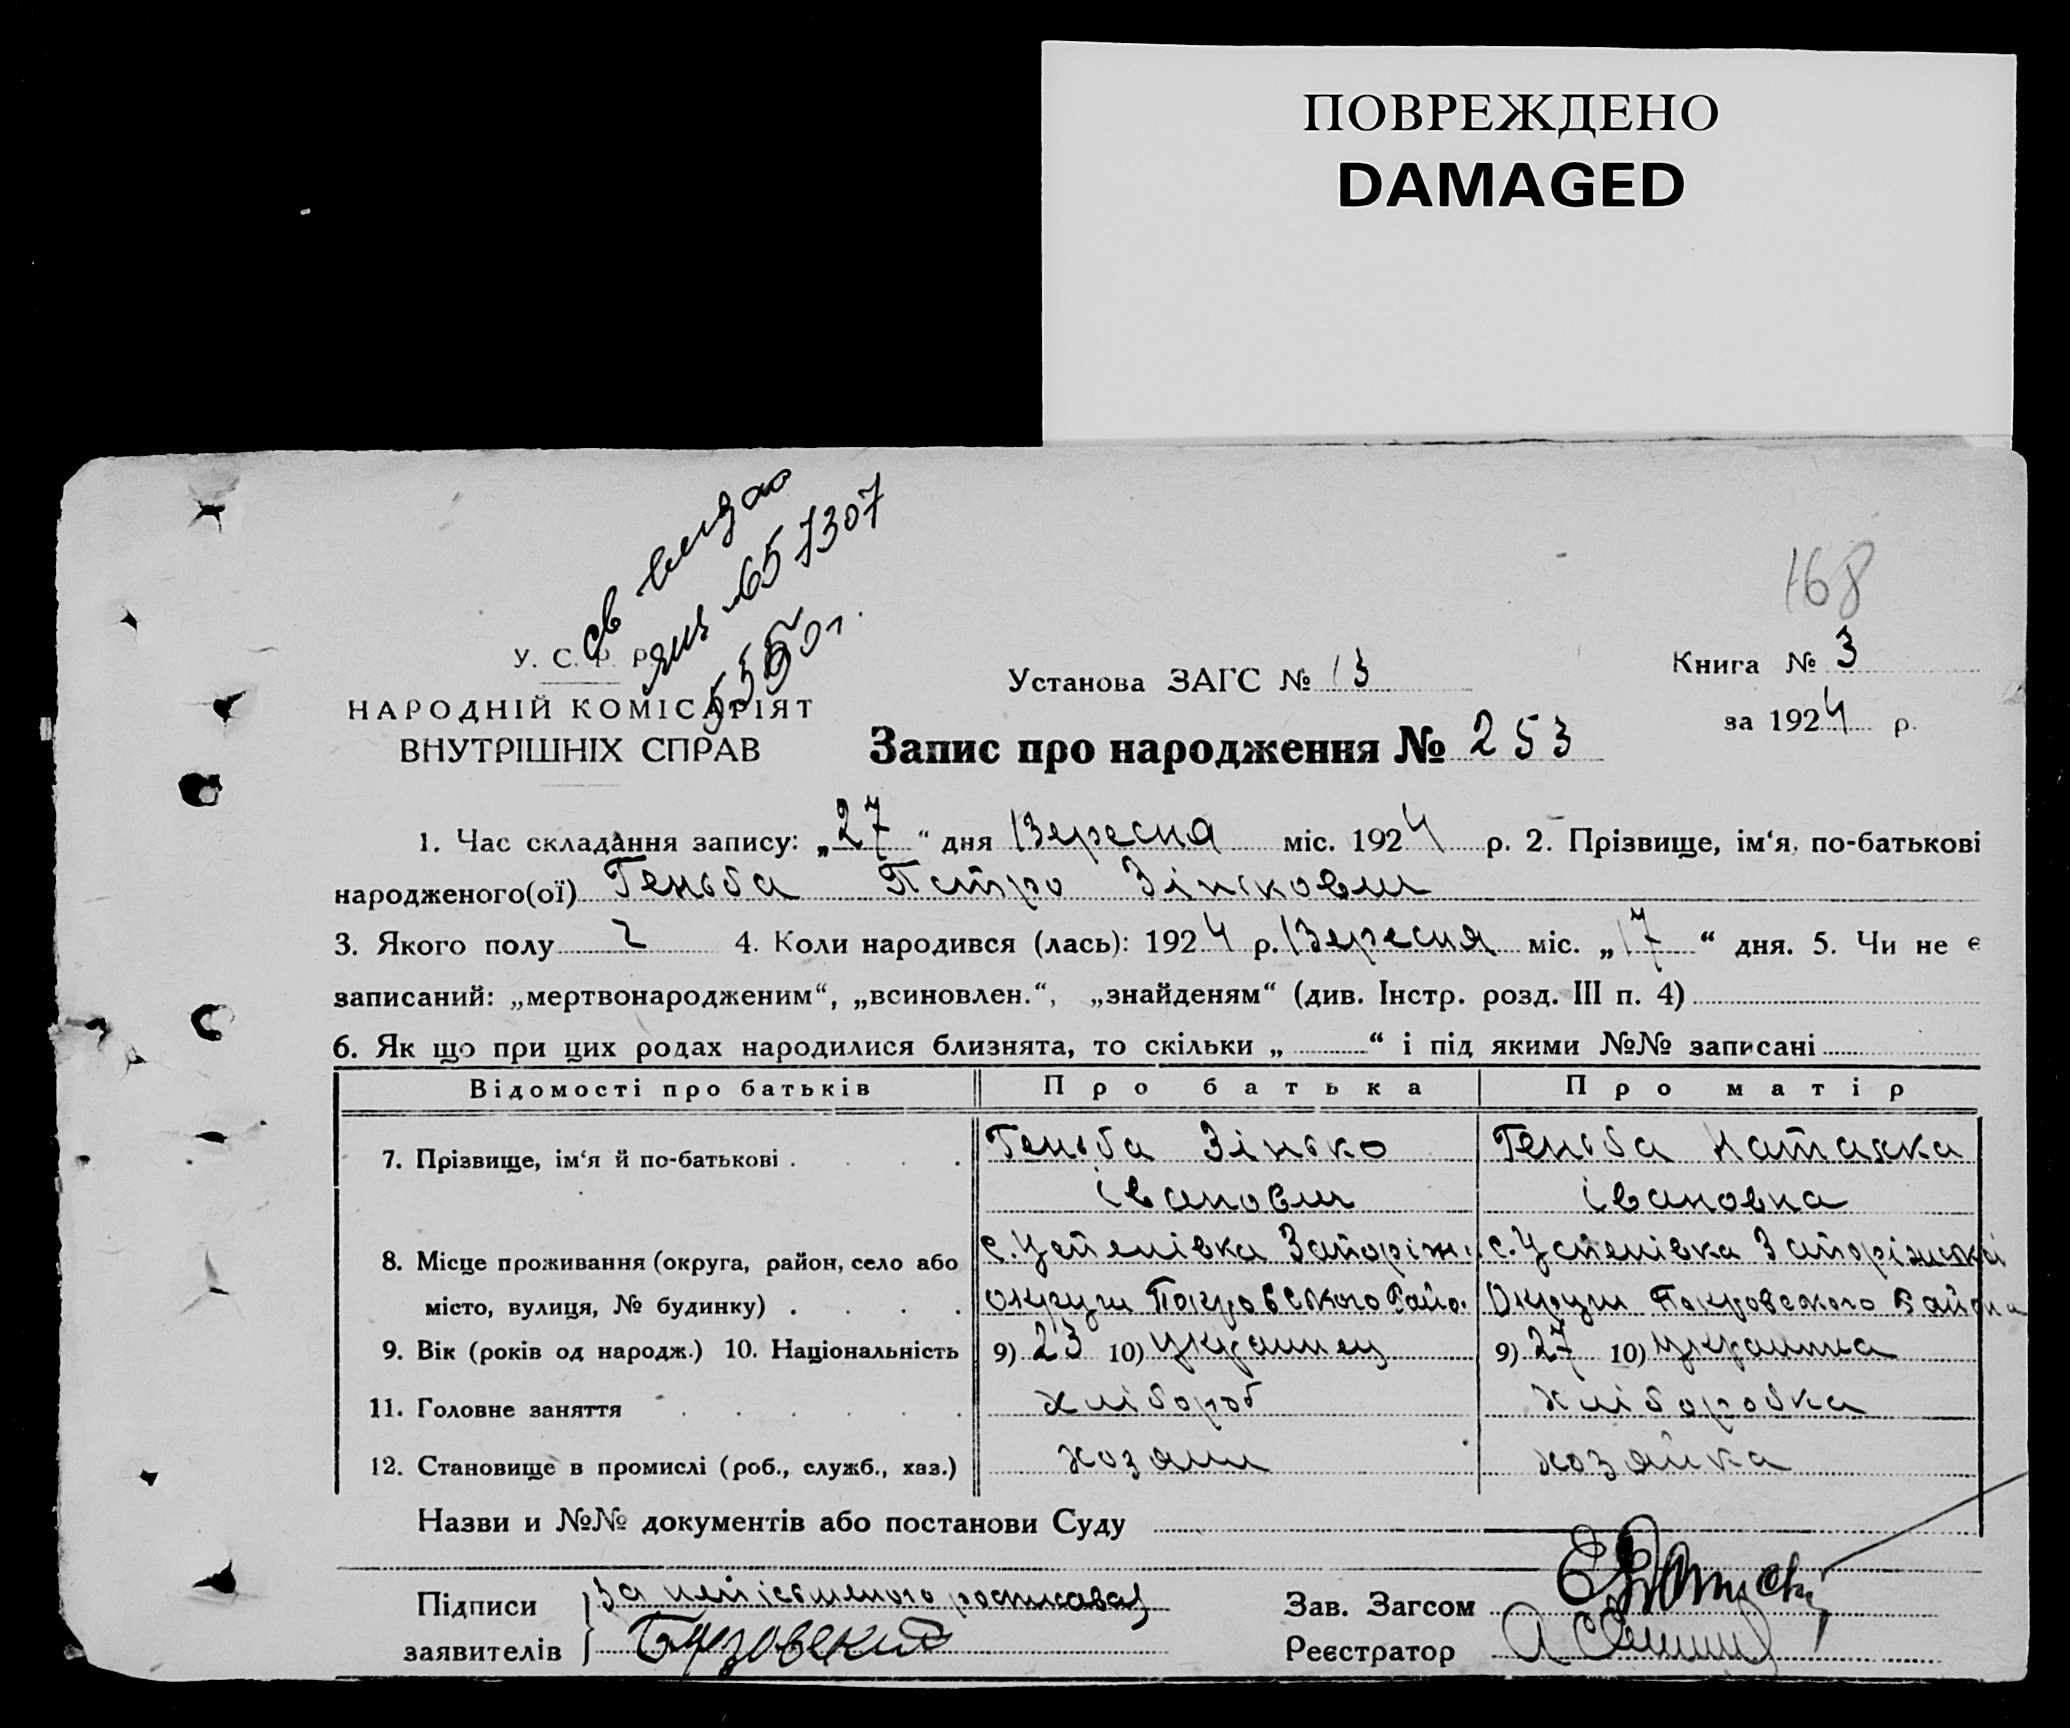 ПОВРЕЖДЕНО
DAMAGED
св
651307
168
У. С. Р. Р.
НАРОДНІЙ КОМІСАРІЯТ
ВНУТРІШНІХ СПРАВ
Установа ЗАГС № 13
Книга № 3
за 1924 р.
Запис про народження № 253
1. Час складання запису: „27“ дня Вересня міс. 1924 р. 2. Прізвище, ім‘я, по-батькові
народженого(ої) Геньба Петро Зінькови
3. Якого полу ч 4. Коли народився (лась): 1924 р. Вересня міс. „17“ дня. 5. Чи не є
записаний: „мертвонародженим“, „всиновлен.“, „знайденям“ (див. Інстр. розд. III п. 4)
6. Як що при цих родах народилися близнята, то скільки „ “ і під якими №№ записані
Відомості про батьків Про батька Про матір
7. Прізвище, ім‘я й по-батькові Геньба Зінько Геньба Наталка
івановы івановна
8. Місце проживання (округа, район, село або с. Успенівка Запоріж. с. Успенівка Запоріжської
місто, вулиця, № будинку) округи Покровського Райо. Округи Покровського Района
9. Вік (років од народж.) 10. Національність 9) 23 10) Украинец 9) 27 10) Украинка
11. Головне заняття хлібороб хлібородка
12. Становище в промислі (роб., служб., хаз.) хозяин хозяйка
Назви и №№ документів або постанови Суду
Підписи За Зав. Загсом
заявителів Бузовский Реєстратор